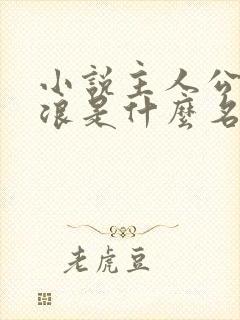 小說主人公
浪是什麼名
老虎豆